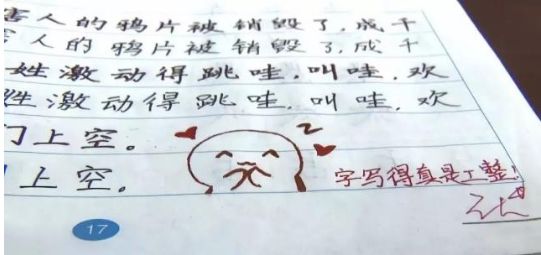 害人的鸦片被销毁了,成千
害人的鸦片被销毁了,成千
姓激动得跳哇,叫哇,欢
姓激动得跳哇,叫哇,欢
门上空。
上空。
字写得真是工整!
17